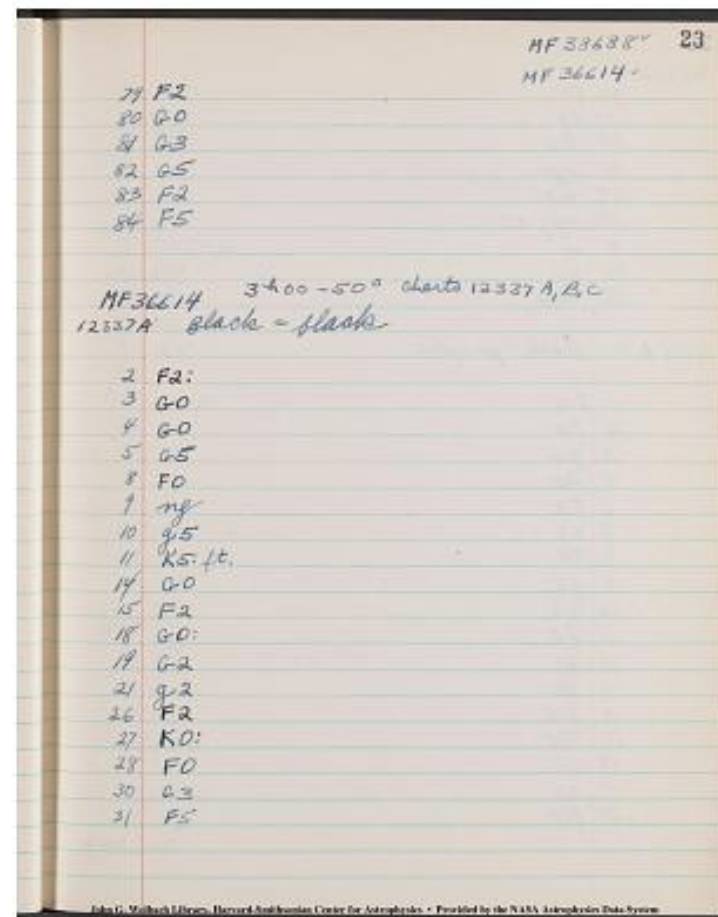 MF 38688 23
MF 36614
79 F2
80 G0
81 G3
82 G5
83 F2
84 F5
MF36614 3h00 -50° charts 12337 A, B, C
12337A Black = flask
2 F2:
3 G0
4 G0
5 G5
8 F0
9 ng
10 g5
11 K5: ft.
14 G0
15 F2
18 G0:
19 G2
21 g2
26 F2
27 K0:
28 F0
30 G3
31 F5
John G. Wolbach Library, Harvard-Smithsonian Center for Astrophysics • Provided by the NASA Astrophysics Data System